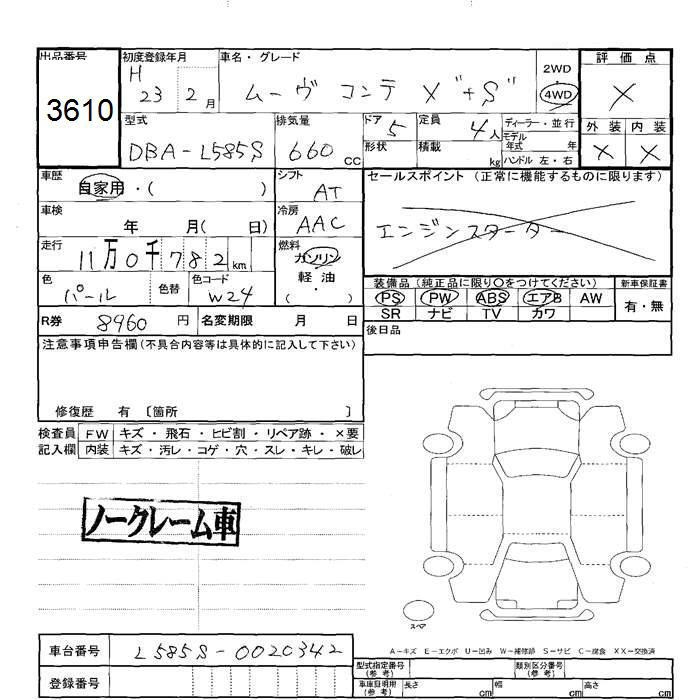 出品番号
3610
初度登録年月
H 23 2月
車名・グレード
ムーヴ コンテ X "+S"
2WD
4WD
評価点
X
外装 内装
X X
型式
DBA-L585S
排気量
660 CC
ドア 5
形状
定員 4人
積載 kg
ディーラー・並行
モデル年式 年
ハンドル 左・右
車歴
自家用・( )
シフト
AT
セールスポイント (正常に機能するものに限ります)
エンジンスターター
車検
年 月( 日)
冷房
AAC
走行
11万0千782km
燃料
ガソリン
軽油
( )
色
パール
色替
色コード
W24
装備品(純正品に限り○をつけてください)
PS PW ABS エアB AW
SR ナビ TV カワ
新車保証書
有・無
R券 8960 円
名変期限 月 日
後日品
注意事項申告欄(不具合内容等は具体的に記入して下さい)
修復歴 有 〔箇所 〕
検査員 FW キズ・飛石・ヒビ割・リペア跡・×要
記入欄 内装 キズ・汚レ・コゲ・穴・スレ・キレ・破レ
ノークレーム車
スペア
A－キズ E－エクボ U－凹み W－補修跡 S－サビ C－腐食 XX－交換済
車台番号 L585S-0020342
登録番号
型式指定番号(参考)
類別区分番号(参考)
車庫証明用(参考) 長さ cm 幅 cm 高さ cm